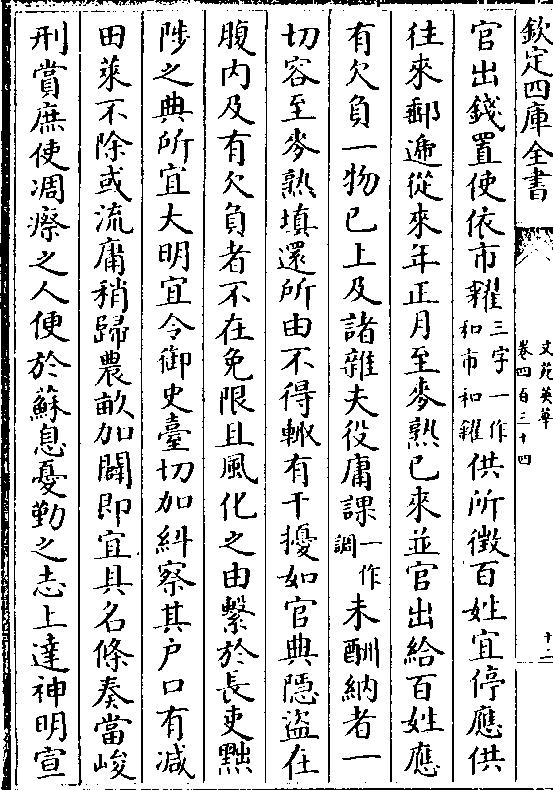 欽定四庫全書
文苑英華
卷四百三十四
十二
官出錢置使依市糴三字一作和市和糴供所徵百姓宜停應供
往來郵遞從來年正月至麥熟已來並官出給百姓應
有欠負一物已上及諸雜夫役庸課一作調未酬納者一
切容至麥熟填還所由不得輙有干擾如官典隱盜在
腹内及有欠負者不在免限且風化之由繫於長吏黜
陟之典所宜大明宜令御史臺切加糾察其户口有減
田萊不除或流庸稍歸農畝加闢即宜具名條奏當峻
刑賞庶使凋瘵之人便於蘇息憂勤之志上達神明宣